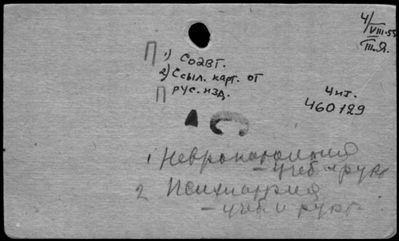 4/VIII-55
Ш.Я.
П 1) Соавт.
2) Ссыл. карт. от
П рус. изд.
Чит.
460129
1 Невропатология
– учеб и рук
2 Психиатрия
– учеб и рук